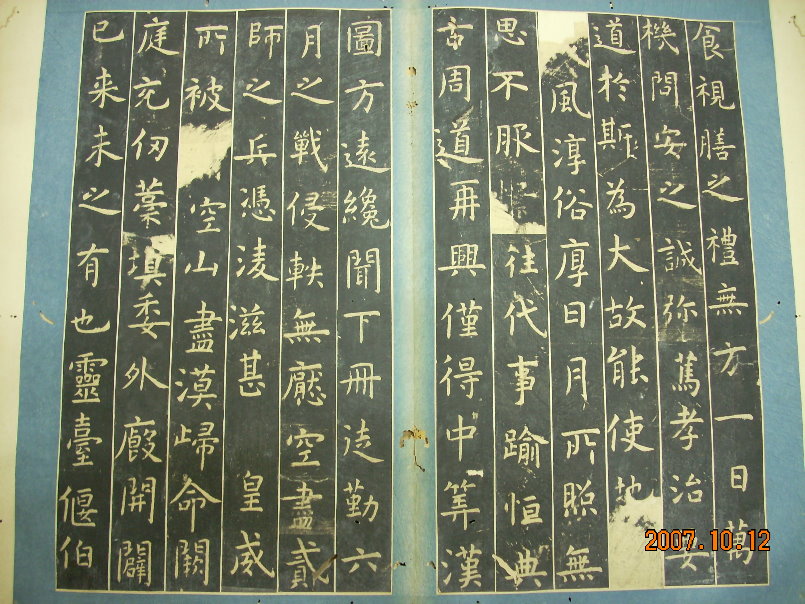 食視膳之禮無方一日萬
機問安之誠弥篤孝治要
道於斯為大故能使地
風淳俗厚日月所照無
思不服往代事踰恒典
古周道再興僅得中筭漢
圖方遠纔聞下冊徒勤六
月之戰侵軼無厭空盡貳
師之兵憑淩滋甚皇威
所被空山盡漠歸命闕
庭充仞藁填委外廄開闢
已来未之有也靈臺偃伯
2007.10.12